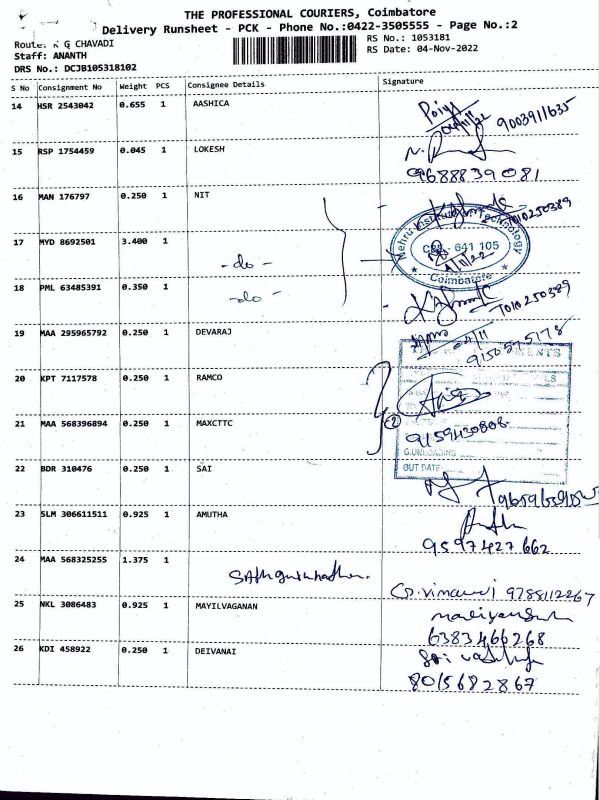 THE PROFESSIONAL COURIERS, Coimbatore
Delivery Runsheet - PCK - Phone No.:0422-3505555 - Page No.:2
Route: K G CHAVADI
RS No.: 1053181
Staff: ANANTH
RS Date: 04-Nov-2022
DRS No.: DCJB105318102
S No Consignment No Weight PCS Consignee Details Signature
14 HSR 2543042 0.655 1 AASHICA
04/11/22 9003911635
15 RSP 1754459 0.045 1 LOKESH
9688839081
16 MAN 176797 0.250 1 NIT
7010250389
Nehru Institute of Technology
17 MYD 8692501 3.400 1 - do -
CBE - 641 105
4/11/22
Coimbatore
18 PML 63485391 0.350 1 - do -
7010250389
19 MAA 295965792 0.250 1 DEVARAJ
04/11
9150575178
20 KPT 7117578 0.250 1 RAMCO
21 MAA 568396894 0.250 1 MAXCTTC
(2)
9159430808
G.UNLOADING
OUT DATE
22 BDR 310476 0.250 1 SAI
23 SLM 306611511 0.925 1 AMUTHA
9597427662
24 MAA 568325255 1.375 1
9788112267
25 NKL 3086483 0.925 1 MAYILVAGANAN
6383466268
26 KDI 458922 0.250 1 DEIVANAI
8015682867